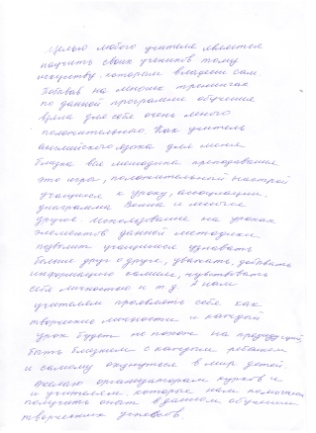 Целью любого учителя является
научить своих учеников тому
искусству которым владеет сам
Побывав на многих тренингах
по данной программе обучения
взяла для себя очень много
положительного. Как учитель
английского языка для меня
близка вся методика преподавания
это игры, положительный настрой
учащихся к уроку, ассоциации,
диаграмма Венна и многое
другое. Использование на уроках
элементов данной методики
позволит учащимся узнавать
больше друг о друге, уважать, добывать
информацию самим, чувствовать
себя личностью и т д и нам
учителям проявлять себя как
творческие личности и каждый
урок будет не похож на предыдущий
быть близким с каждым ребёнком
и самому окунуться в мир детей
организаторам курсов и
и учителям которые нам помогают
получить опыт в данном обучении
творческих успехов.